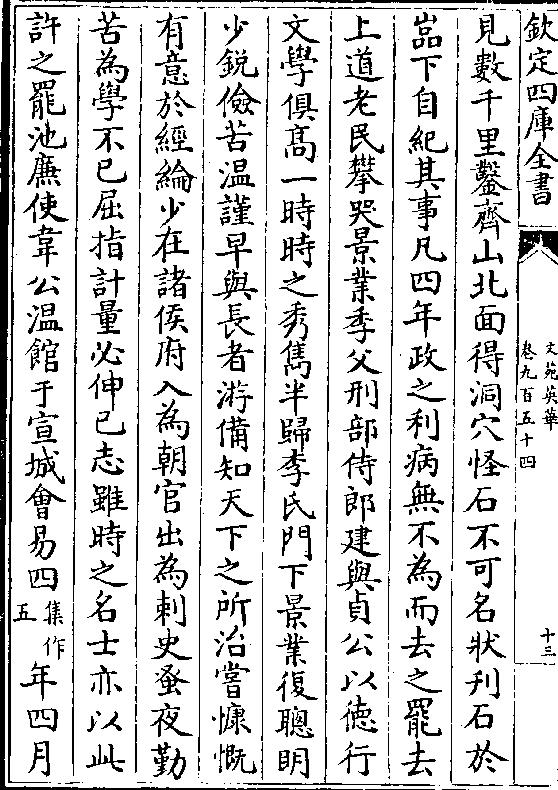 欽定四庫全書
文苑英華
卷九百五十四
十三
見數千里鑿齊山北面得洞穴怪石不可名狀刋石於
嵓下自紀其事凡四年政之利病無不為而去之罷去
上道老民攀哭景業季父刑部侍郎建與貞公以徳行
文學俱髙一時時之秀雋半歸李氏門下景業復聰明
少鋭儉苦温謹早與長者游備知天下之所治嘗慷慨
有意於經綸少在諸侯府入為朝官出為刺史蚤夜勤
苦為學不已屈指計量必伸已志雖時之名士亦以此
許之罷池廉使韋公温館于宣城會昌四集作五年四月